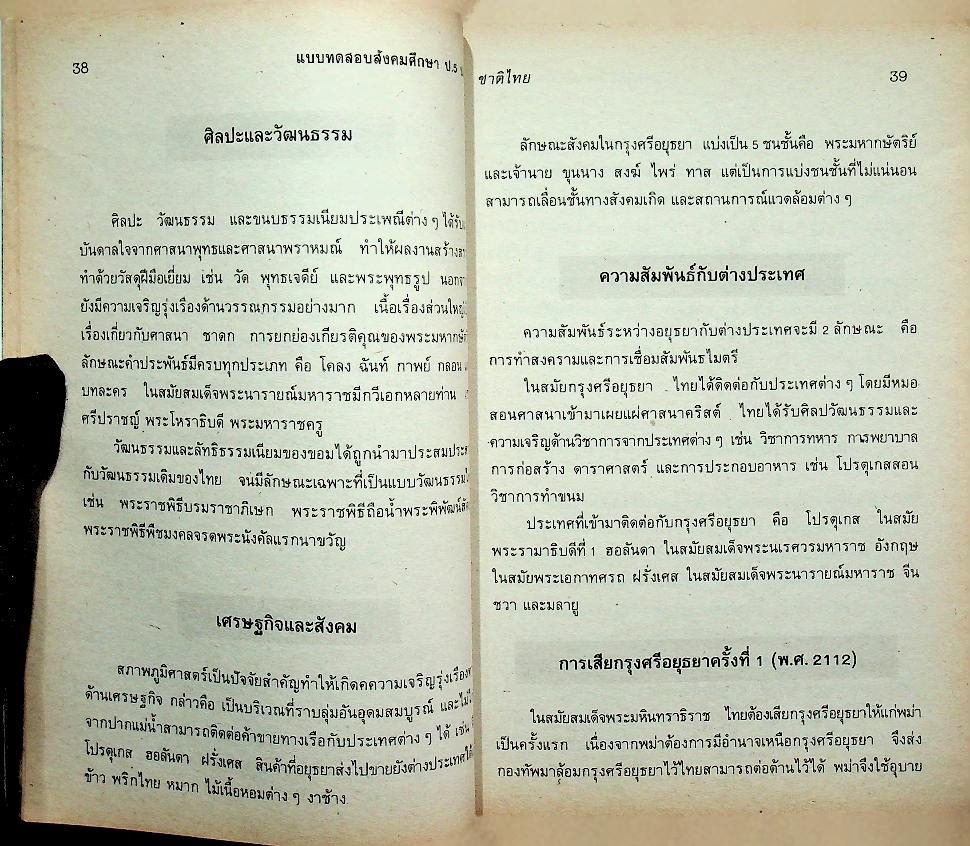 38
แบบทดสอบสังคมศึกษา ป.5
ศิลปะและวัฒนธรรม
ศิลปะ วัฒนธรรม และขนบธรรมเนียมประเพณีต่าง ๆ ได้รับ
บันดาลใจจากศาสนาพุทธและศาสนาพราหมณ์ ทำให้ผลงานสร้าง
ทำด้วยวัสดุฝีมือเยี่ยม เช่น วัด พุทธเจดีย์ และพระพุทธรูป
ยังมีความเจริญรุ่งเรืองด้านวรรณกรรมอย่างมาก เนื้อเรื่องส่วนใหญ่
เรื่องเกี่ยวกับศาสนา ชาดก การยกย่องเกียรติคุณของพระมหากษั
ลักษณะคำประพันธ์มีครบทุกประเภท คือ โคลง ฉันท์ กาพย์ กลอน
บทละคร ในสมัยสมเด็จพระนารายณ์มหาราชมีกวีเอกหลายท่าน
ศรีปราชญ์ พระโหราธิบดี พระมหาราชครู
วัฒนธรรมและลัทธิธรรมเนียมของขอมได้ถูกนำมาประสมประ
กับวัฒนธรรมเดิมของไทย จนมีลักษณะเฉพาะที่เป็นแบบวัฒนธรรม
เช่น พระราชพิธีบรมราชาภิเษก พระราชพิธีถือน้ำพระพิพัฒน์
พระราชพิธีพืชมงคลจรดพระนังคัลแรกนาขวัญ
เศรษฐกิจและสังคม
สภาพภูมิศาสตร์เป็นปัจจัยสำคัญทำให้เกิดคความเจริญรุ่งเรือง
ด้านเศรษฐกิจ กล่าวคือ เป็นบริเวณที่ราบลุ่มอันอุดมสมบูรณ์
จากปากแม่น้ำสามารถติดต่อค้าขายทางเรือกับประเทศต่าง ๆ ได้ เช่น
โปรตุเกส ฮอลันดา ฝรั่งเศส สินค้าที่อยุธยาส่งไปขายยังต่างประเทศ
ข้าว พริกไทย หมาก ไม้เนื้อหอมต่าง ๆ งาช้าง
ชาติไทย
39
ลักษณะสังคมในกรุงศรีอยุธยา แบ่งเป็น 5 ชนชั้นคือ พระมหากษัตริย์
และเจ้านาย ขุนนาง สงฆ์ ไพร่ ทาส แต่เป็นการแบ่งชนชั้นที่ไม่แน่นอน
สามารถเลื่อนชั้นทางสังคมเกิด และสถานการณ์แวดล้อมต่าง ๆ
ความสัมพันธ์กับต่างประเทศ
ความสัมพันธ์ระหว่างอยุธยากับต่างประเทศจะมี 2 ลักษณะ คือ
การทำสงครามและการเชื่อมสัมพันธไมตรี
ในสมัยกรุงศรีอยุธยา ไทยได้ติดต่อกับประเทศต่าง ๆ โดยมีหมอ
สอนศาสนาเข้ามาเผยแผ่ศาสนาคริสต์ ไทยได้รับศิลปวัฒนธรรมและ
ความเจริญด้านวิชาการจากประเทศต่าง ๆ เช่น วิชาการทหาร การพยาบาล
การก่อสร้าง ดาราศาสตร์ และการประกอบอาหาร เช่น โปรตุเกสสอน
วิชาการทำขนม
ประเทศที่เข้ามาติดต่อกับกรุงศรีอยุธยา คือ โปรตุเกส ในสมัย
พระรามาธิบดีที่ 1 ฮอลันดา ในสมัยสมเด็จพระนเรศวรมหาราช อังกฤษ
ในสมัยพระเอกาทศรถ ฝรั่งเศส ในสมัยสมเด็จพระนารายณ์มหาราช จีน
ชวา และมลายู
การเสียกรุงศรีอยุธยาครั้งที่ 1 (พ.ศ. 2112)
ในสมัยสมเด็จพระมหินทราธิราช ไทยต้องเสียกรุงศรีอยุธยาให้แก่พม่า
เป็นครั้งแรก เนื่องจากพม่าต้องการมีอำนาจเหนือกรุงศรีอยุธยา จึงส่ง
กองทัพมาล้อมกรุงศรีอยุธยาไว้ไทยสามารถต่อต้านไว้ได้ พม่าจึงใช้อุบาย